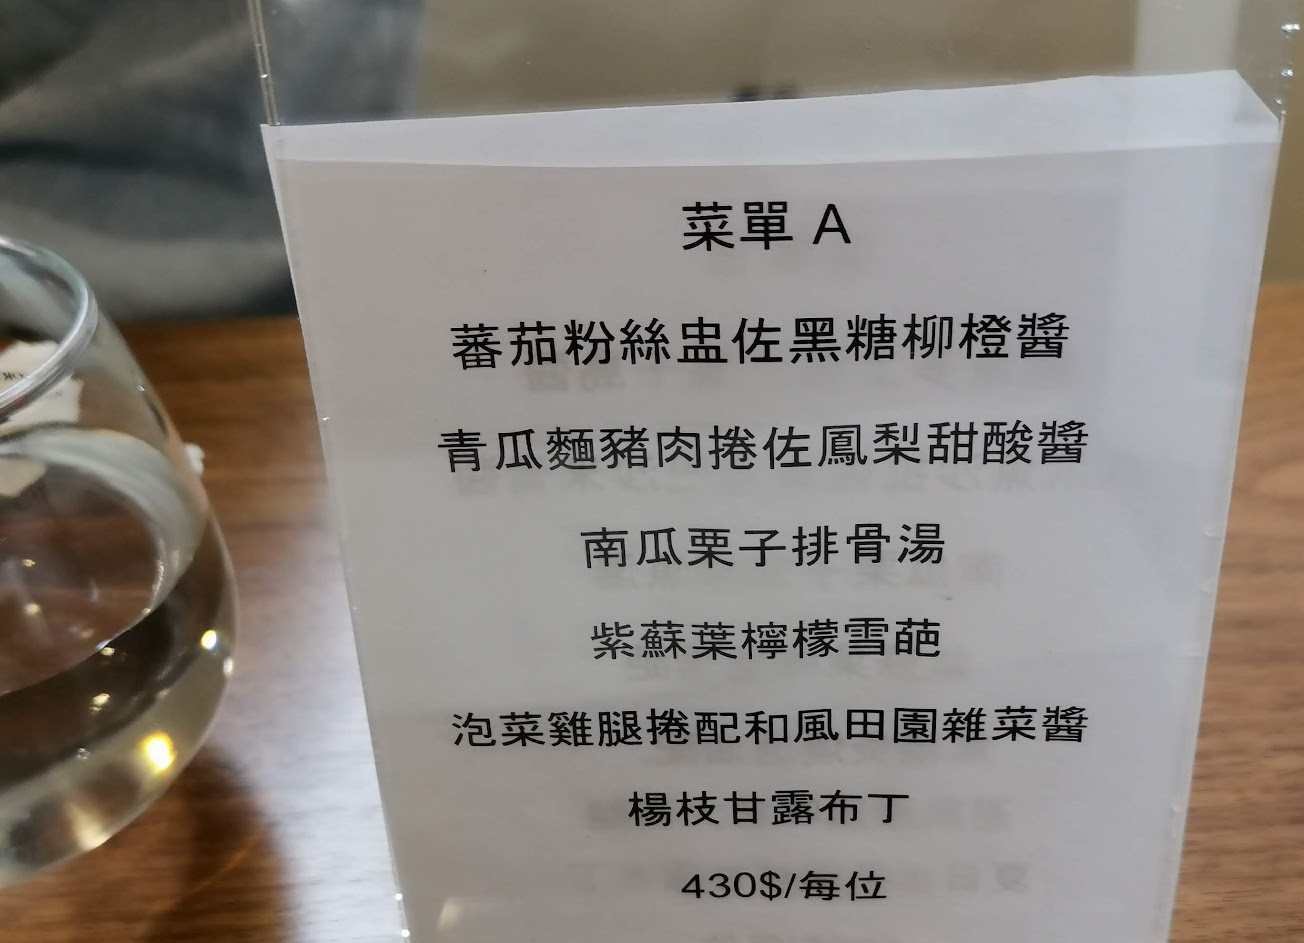 菜單 A
蕃茄粉絲盅佐黑糖柳橙醬
青瓜麵豬肉捲佐鳳梨甜酸醬
南瓜栗子排骨湯
紫蘇葉檸檬雪葩
泡菜雞腿捲配和風田園雜菜醬
楊枝甘露布丁
430$/每位